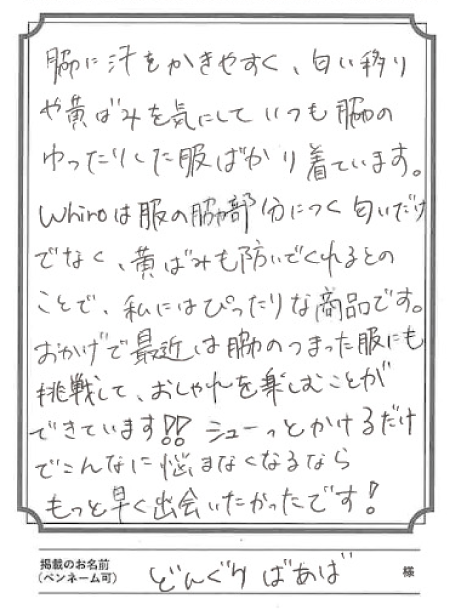 脇に汗をかきやすく、匂い移り
や黄ばみを気にしていつも脇の
ゆったりした服ばかり着ています。
Whiroは服の脇部分につく匂いだけ
でなく、黄ばみも防いでくれるとの
ことで、私にはぴったりな商品です。
おかげで最近は脇のつまった服にも
挑戦して、おしゃれを楽しむことが
できています!! シューっとかけるだけ
でこんなに悩まなくなるなら
もっと早く出会いたかったです!
掲載のお名前
(ペンネーム可) どんぐりばあば 様